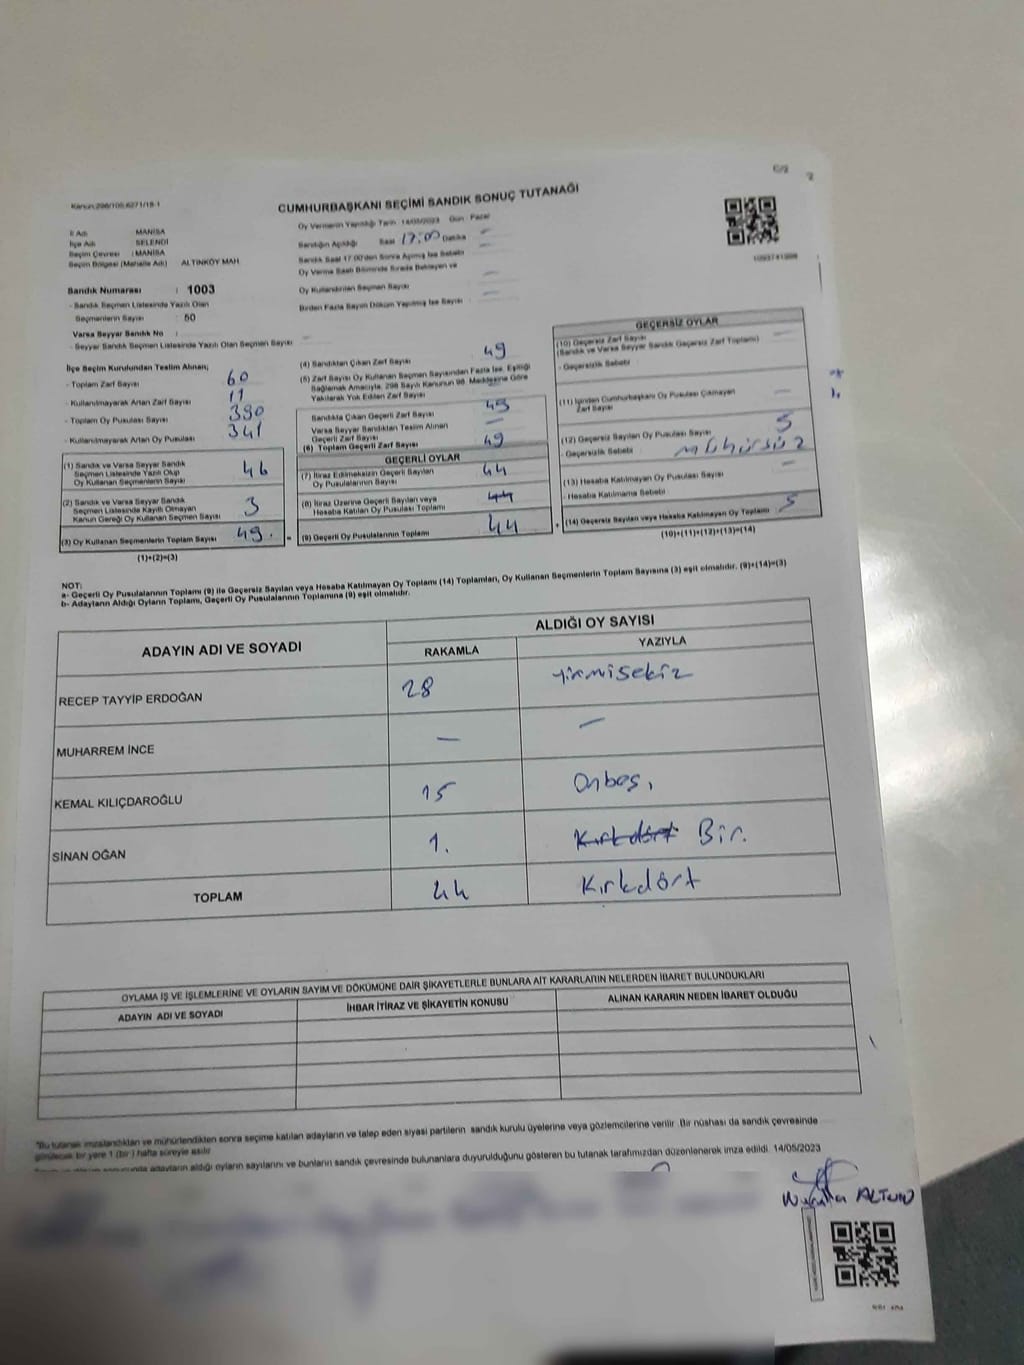 Kanun:298/105,6271/18-1
CUMHURBAŞKANI SEÇİMİ SANDIK SONUÇ TUTANAĞI
İl Adı : MANİSA
İlçe Adı : SELENDİ
Seçim Çevresi : MANİSA
Seçim Bölgesi (Mahalle Adı) ALTINKÖY MAH.
Sandık Numarası : 1003
- Sandık Seçmen Listesinde Yazılı Olan
Seçmenlerin Sayısı : 50
Varsa Seyyar Sandık No :
- Seyyar Sandık Seçmen Listesinde Yazılı Olan Seçmen Sayısı
Oy Vermenin Yapıldığı Tarih 14/05/2023 Gün : Pazar
Sandığın Açıldığı Saat 17:00 Dakika
Sandık Saat 17.00'den Sonra Açılmış İse Sebebi
Oy Verme Saati Bitiminde Sırada Bekleyen ve
Oy Kullandırılan Seçmen Sayısı
Birden Fazla Sayım Döküm Yapılmış İse Sayısı
İlçe Seçim Kurulundan Teslim Alınan;
- Toplam Zarf Sayısı 60
- Kullanılmayarak Artan Zarf Sayısı 11
- Toplam Oy Pusulası Sayısı 390
- Kullanılmayarak Artan Oy Pusulası 341
(1) Sandık ve Varsa Seyyar Sandık
Seçmen Listesinde Yazılı Olup
Oy Kullanan Seçmenlerin Sayısı 46
(2) Sandık ve Varsa Seyyar Sandık
Seçmen Listesinde Kayıtlı Olmayan
Kanun Gereği Oy Kullanan Seçmen Sayısı 3
(3) Oy Kullanan Seçmenlerin Toplam Sayısı 49.
(1)+(2)=(3)
(4) Sandıktan Çıkan Zarf Sayısı 49
(5) Zarf Sayısı Oy Kullanan Seçmen Sayısından Fazla İse, Eşitliği
Sağlamak Amacıyla, 298 Sayılı Kanunun 98. Maddesine Göre
Yakılarak Yok Edilen Zarf Sayısı
Sandıkta Çıkan Geçerli Zarf Sayısı 49
Varsa Seyyar Sandıktan Teslim Alınan
Geçerli Zarf Sayısı
(6) Toplam Geçerli Zarf Sayısı 49
GEÇERLİ OYLAR
(7) İtiraz Edilmeksizin Geçerli Sayılan
Oy Pusulalarının Sayısı 44
(8) İtiraz Üzerine Geçerli Sayılan veya
Hesaba Katılan Oy Pusulası Toplamı 44
(9) Geçerli Oy Pusulalarının Toplamı 44
GEÇERSİZ OYLAR
(10) Geçersiz Zarf Sayısı
(Sandık ve Varsa Seyyar Sandık Geçersiz Zarf Toplamı)
- Geçersizlik Sebebi
(11) İçinden Cumhurbaşkanı Oy Pusulası Çıkmayan
Zarf Sayısı
(12) Geçersiz Sayılan Oy Pusulası Sayısı 5
- Geçersizlik Sebebi mühürsüz
(13) Hesaba Katılmayan Oy Pusulası Sayısı
- Hesaba Katılmama Sebebi
(14) Geçersiz Sayılan veya Hesaba Katılmayan Oy Toplamı 5
(10)+(11)+(12)+(13)=(14)
NOT:
a- Geçerli Oy Pusulalarının Toplamı (9) ile Geçersiz Sayılan veya Hesaba Katılmayan Oy Toplamı (14) Toplamları, Oy Kullanan Seçmenlerin Toplam Sayısına (3) eşit olmalıdır. (9)+(14)=(3)
b- Adayların Aldığı Oyların Toplamı, Geçerli Oy Pusulalarının Toplamına (9) eşit olmalıdır.
ADAYIN ADI VE SOYADI
ALDIĞI OY SAYISI
RAKAMLA YAZIYLA
RECEP TAYYİP ERDOĞAN 28 yirmisekiz
MUHARREM İNCE — —
KEMAL KILIÇDAROĞLU 15 Onbeş,
SİNAN OĞAN 1. Kırkdört Bir.
TOPLAM 44 Kırkdört
OYLAMA İŞ VE İŞLEMLERİNE VE OYLARIN SAYIM VE DÖKÜMÜNE DAİR ŞİKAYETLERLE BUNLARA AİT KARARLARIN NELERDEN İBARET BULUNDUKLARI
ADAYIN ADI VE SOYADI İHBAR İTİRAZ VE ŞİKAYETİN KONUSU ALINAN KARARIN NEDEN İBARET OLDUĞU
"Bu tutanak imzalandıktan ve mühürlendikten sonra seçime katılan adayların ve talep eden siyasi partilerin sandık kurulu üyelerine veya gözlemcilerine verilir. Bir nüshası da sandık çevresinde
görülecek bir yere 1 (bir) hafta süreyle asılır.
adayların aldığı oyların sayılarını ve bunların sandık çevresinde bulunanlara duyurulduğunu gösteren bu tutanak tarafımızdan düzenlenerek imza edildi. 14/05/2023
ALTUN